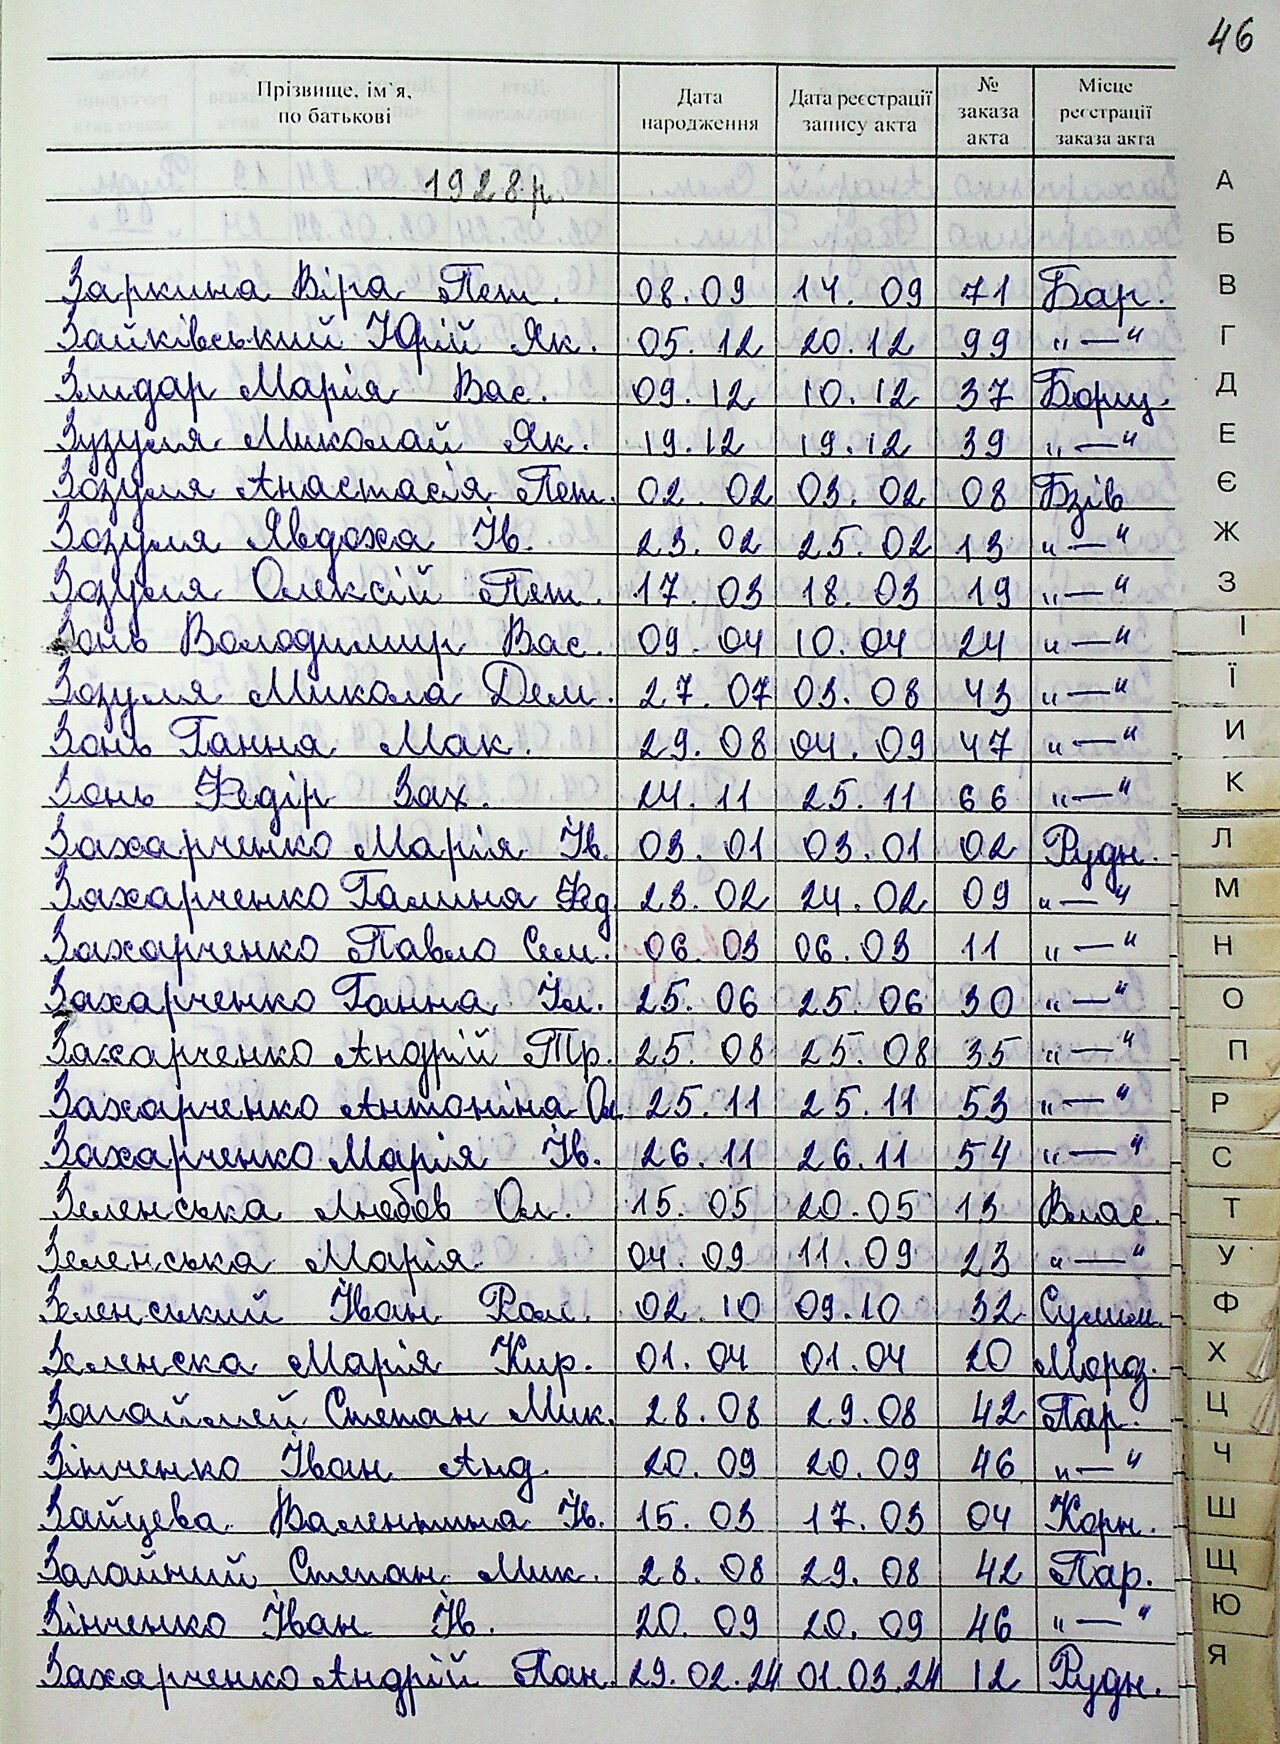 46
Прізвище, ім`я, по батькові Дата народження Дата реєстрації запису акта № заказа акта Місце реєстрації заказа акта
1928р.
Заркина Віра Пет. 08.09 14.09 71 Бар.
Зайківський Юрій Як. 05.12 20.12 99 „—"
Злидар Марія Вас. 09.12 10.12 37 Борщ.
Зузуля Миколай Як. 19.12 19.12 39 „—"
Зозуля Анастасія Пет. 02.02 03.02 08 Бзів
Зозуля Явдоха Ів. 23.02 25.02 13 „—"
Зозуля Олексій Пет. 17.03 18.03 19 „—"
Зонь Володимир Вас. 09.04 10.04 24 „—"
Зозуля Микола Дем. 27.07 03.08 43 „—"
Зонь Ганна Мак. 29.08 04.09 47 „—"
Зонь Федір Зах. 24.11 25.11 66 „—"
Захарченко Марія Ів. 03.01 03.01 02 Рудн.
Захарченко Галина Фед. 23.02 24.02 09 „—"
Захарченко Павло Сем. 06.03 06.03 11 „—"
Захарченко Ганна Іл. 25.06 25.06 30 „—"
Захарченко Андрій Тр. 25.08 25.08 35 „—"
Захарченко Антоніна Ол. 25.11 25.11 53 „—"
Захарченко Марія Ів. 26.11 26.11 54 „—"
Зеленська Любов Ол. 15.05 20.05 13 Влас.
Зеленська Марія. 04.09 11.09 23 „—"
Зеленський Іван Ром. 02.10 09.10 32 Сулим.
Зеленска Марія Кир. 01.04 01.04 20 Мороз.
Степан Мик. 28.08 29.08 42 Пар.
Зінченко Іван Анд. 20.09 20.09 46 „—"
Зайцева Валентина Ів. 15.03 17.03 04 Корн.
Загайний Степан Мик. 28.08 29.08 42 Пар.
Зінченко Іван Ів. 20.09 20.09 46 „—"
Захарченко Андрій Пан. 29.02.24 01.03.24 12 Рудн.
А
Б
В
Г
Д
Е
Є
Ж
З
І
Ї
И
К
Л
М
Н
О
П
Р
С
Т
У
Ф
Х
Ц
Ч
Ш
Щ
Ю
Я